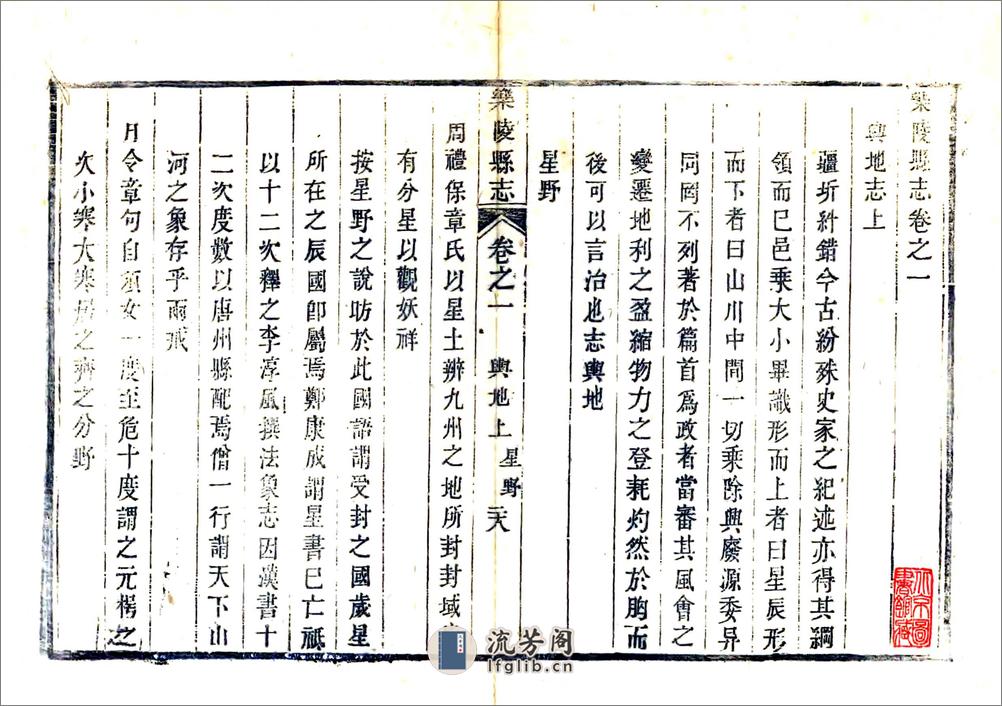 樂陵縣志卷之一
輿地志上
疆圻紏錯今古紛殊史家之紀述亦得其綱
領而已邑乘大小畢識形而上者曰星辰形
而下者曰山川中間一切乘除興廢源委异
同罔不列著於篇首爲政者當審其風會之
變遷地利之盈縮物力之登耗灼然於胸而
後可以言治也志輿地
星野
樂陵縣志 卷之一 輿地上 星野
周禮保章氏以星土辨九州之地所封封域
有分星以觀妖祥
按星野之說昉於此國語謂受封之國歲星
所在之辰國卽屬焉鄭康成謂星書已亡祗
以十二次釋之李淳風撰法象志因漢書十
二次度數以唐州縣配焉僧一行謂天下山
河之象存乎兩戒
月令章句自須女一度至危十度謂之元枵之
次小寒大寒居之齊之分野
流芳阁
lfglib.cn